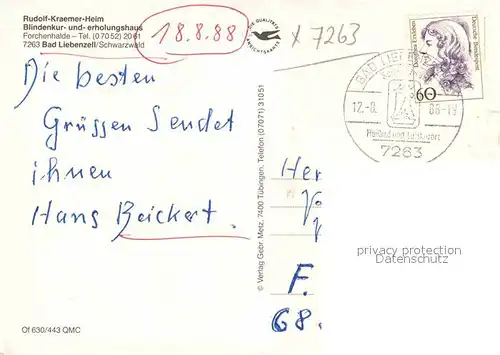 Rudolf-Kraemer-Heim
Blindenkur- und -erholungshaus
Forchenhalde – Tel. (07052) 2061
7263 Bad Liebenzell/Schwarzwald
18.8.88
X 7263
DIE QUALITÄTS
ANSICHTSKARTE
Deutsche Bundespost
60
BAD LIEBENZELL
12.-8. 88-19
Heilbad und Luftkurort
7263
Die besten
Grüssen Sendet
ihnen
Hans Beickert.
© Verlag Gebr. Metz, 7400 Tübingen, Telefon (07071) 31051
Her
F.
68.
privacy protection
Datenschutz
Of 630/443 QMC